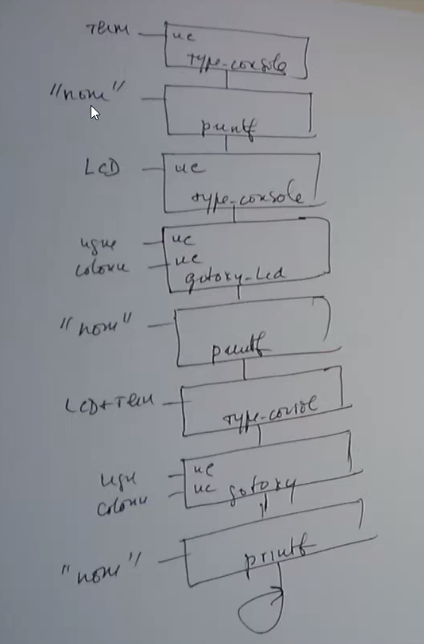 Term uc
type-console
"nom"
printf
LCD uc
type-console
ligne uc
colonne uc
gotoxy-lcd
"nom"
printf
LCD+Term
type-consol
ligne uc
colonne uc gotoxy
"nom"
printf